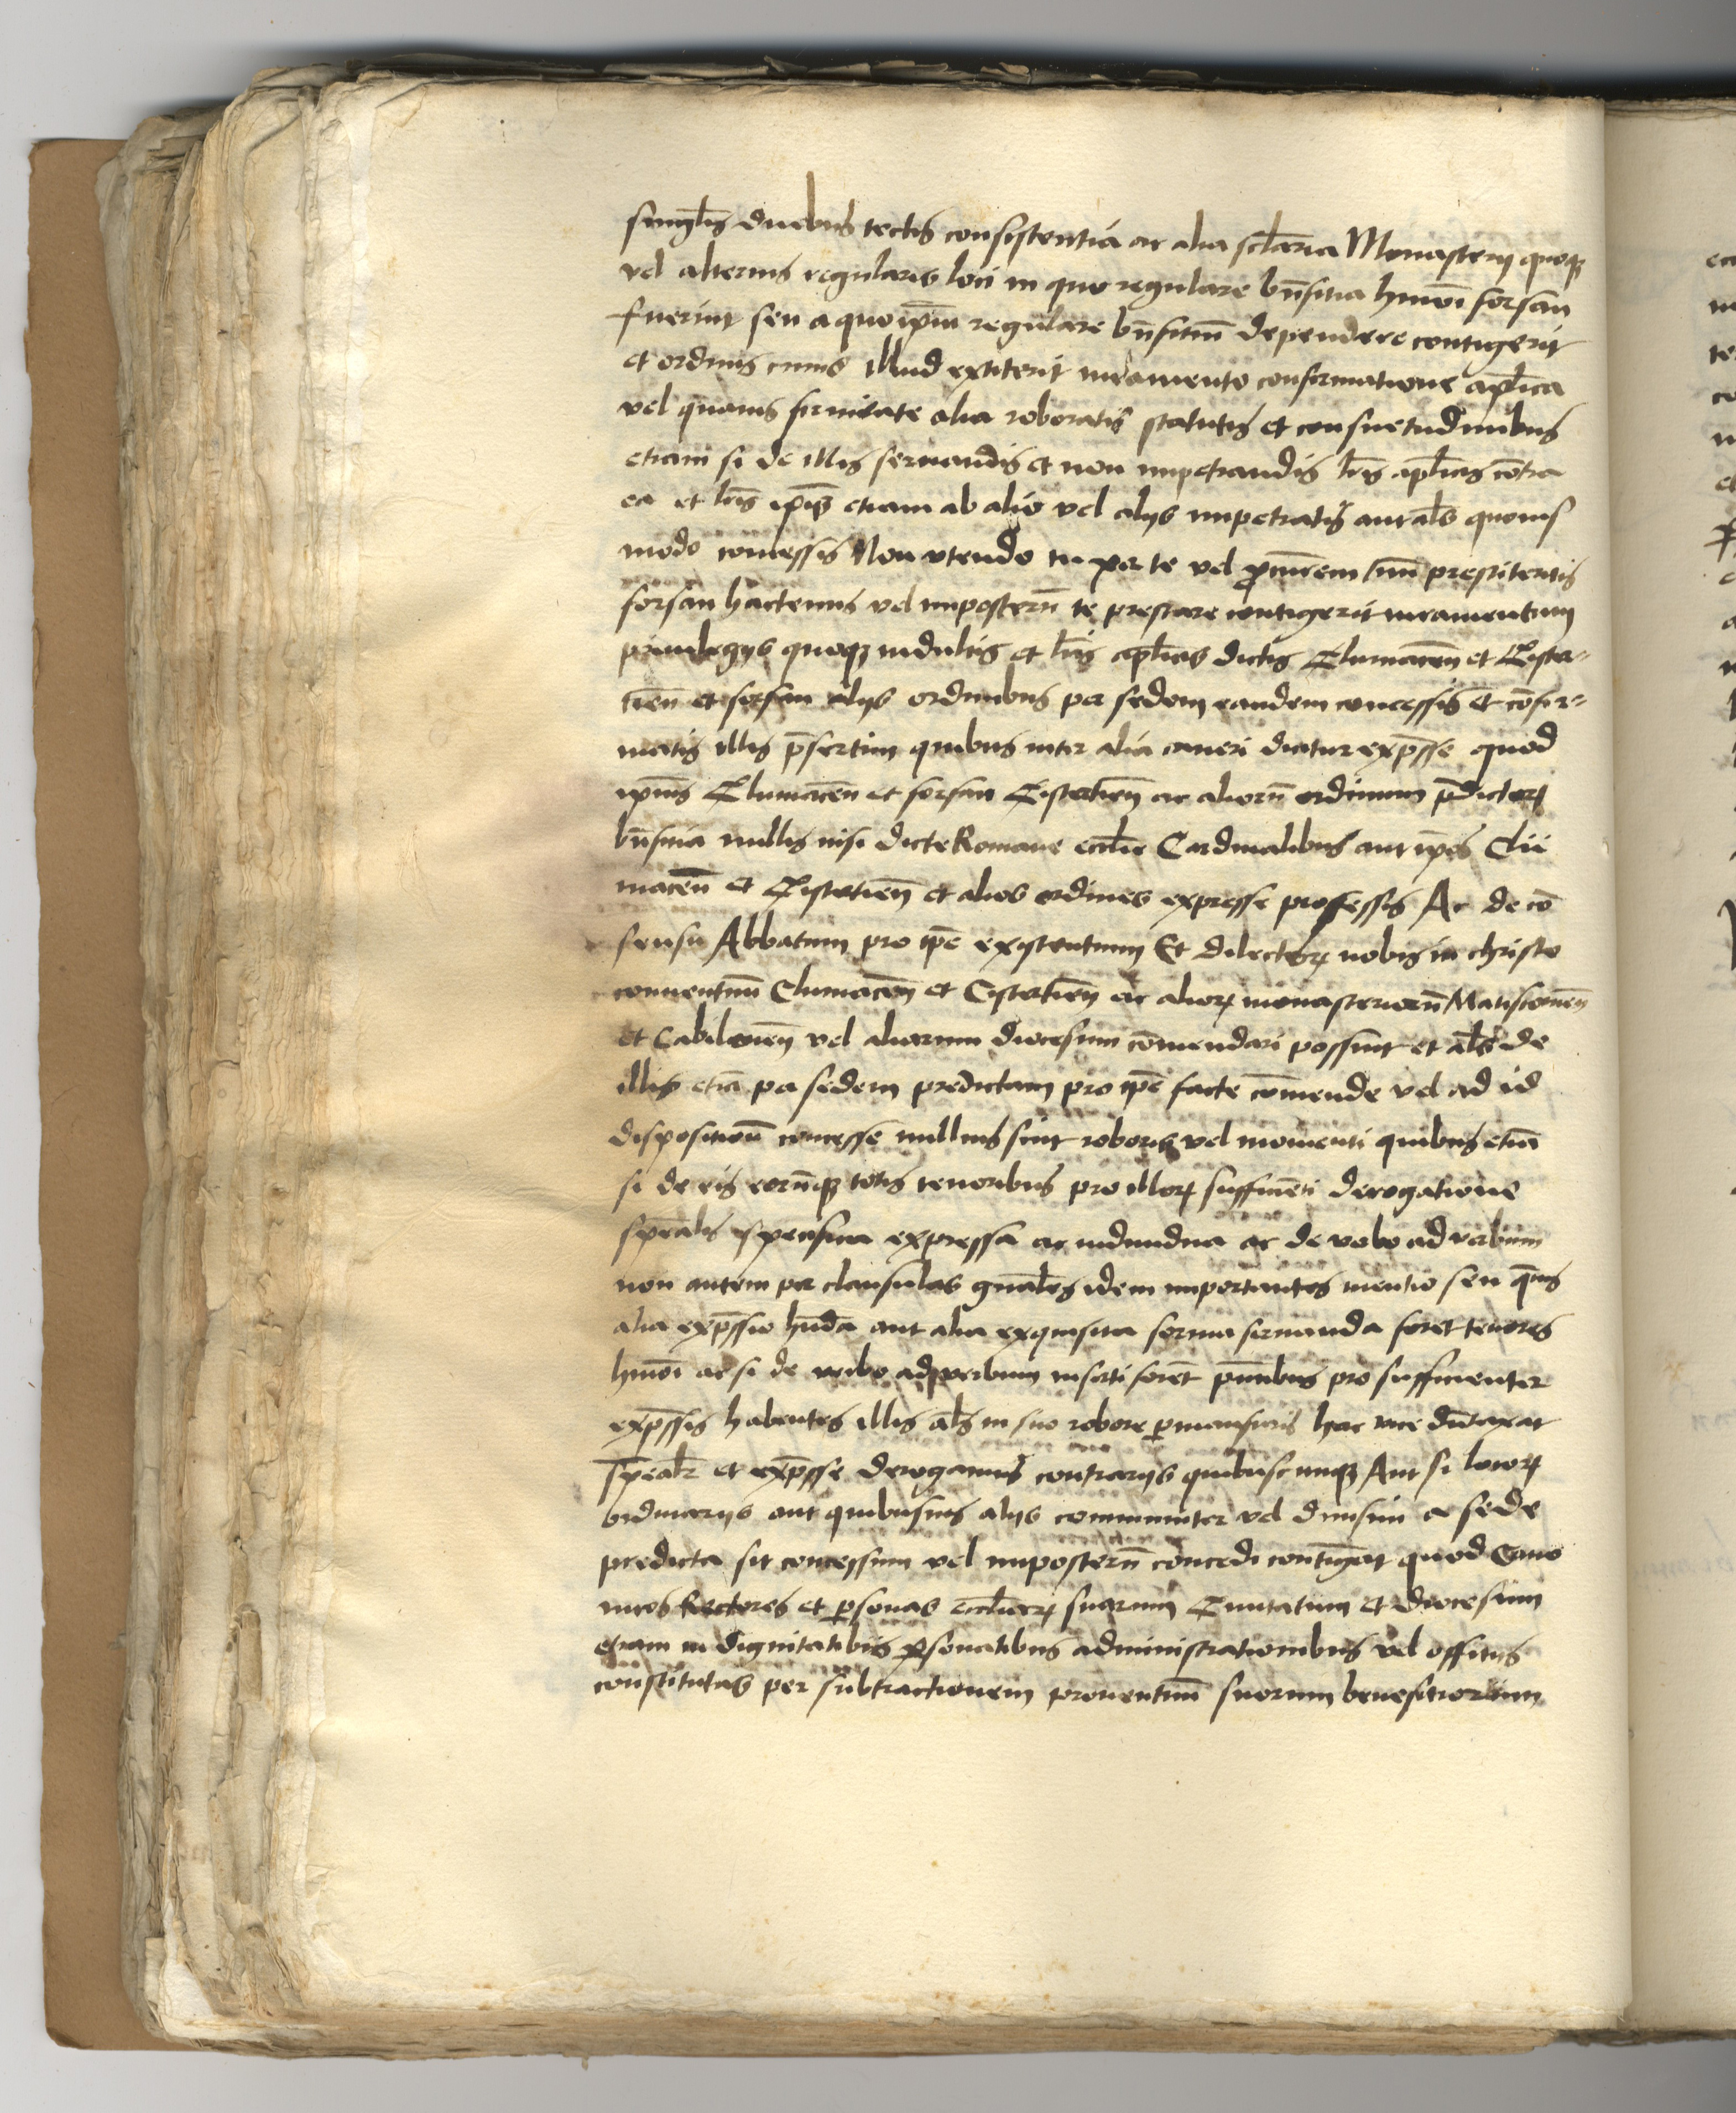 singl̄is duobus tectis consistentia ac alia scl̄aria Monasterij quoqꝫ
vel alterius regularis loci in quo regulare bn̄fitia hmōi forsan
fuerint seu a quo ip̄m regulare bn̄fitiū dependere contigerit
et ordinis cuius illud extiterit iuramento confirmatione apl̄ica
vel quauis firmitate alia roboratis statutis et consuetudinibus
etiam si de illis seruandis et non impetrandis lr̄is apl̄icis cōtra
ea et lr̄is ip̄is etiam ab alio vel alijs impetratis aut al̄s quouis
modo concessis Non vtendo tu per te vel ꝓcur̄em tuū prestiteris
forsan hactenus vel imposterū te prestare contigerit iuramentum
priuilegijs quoqꝫ indultis et lr̄is apl̄icis dictis Cluniacēn et Cister-
tien̄ et forsan alijs ordinibus per sedem eandem concessis et cōfir-
matis illis p̄sertim quibus inter alia caueri dicitur exp̄sse quod
ip̄ius Cluniacēn et forsan Cistertien̄ ac aliorū ordinum p̄dictoꝝ
bn̄fitia nullis nisi dicte Romane eccl̄ie Cardinalibus aut ip̄os Clu
niacēn et Cistertien̄ et alios ordines expresse professis Ac de cō
sensu Abbatum pro tp̄e existentium Et dilectoꝝ nobis in christo
conuentuū Cluniacēn et Cistertien̄ ac alioꝝ monasteriorū Matisconēn
et Cabilonēn vel aliarum diocesum cōmendari possunt et al̄s de
illis etiā per sedem predictam pro tp̄e facte cōmende vel ad id
dispositionū concesse nullius sint roboris vel momenti quibus etiā
si de eis eorūqꝫ totis tenoribus pro illoꝝ sufficiēti derogatione
sp̄ealis specifica expressa ac indiuidua ac de verbo ad verbum
non autem per clausulas gn̄ales idem importantes mentio seu q̄uis
alia exp̄ssio hn̄da aut alia exquisita forma seruanda foret tenores
hmōi ac si de verbo ad verbum inserti forēt p̄ntibus pro sufficienter
exp̄ssis habentes illis al̄s in suo robore ꝑmansuris hac vice dūtaxat
sp̄ealr̄ et exp̄sse derogamus contrarijs quibuscunqꝫ Aut si locoꝝ
ordinarijs aut quibusuis alijs communiter vel diuisim a sede
predicta sit concessum vel imposterū concedi contīgat quod Cano
nicos Rectores et ꝑsonas eccl̄iaꝝ suarum Ciuitatum et diocesium
etiam in dignitatibus ꝑsonatibus administrationibus vel offitijs
constitutas per subtractionem prouentuū suorum benefitiorum